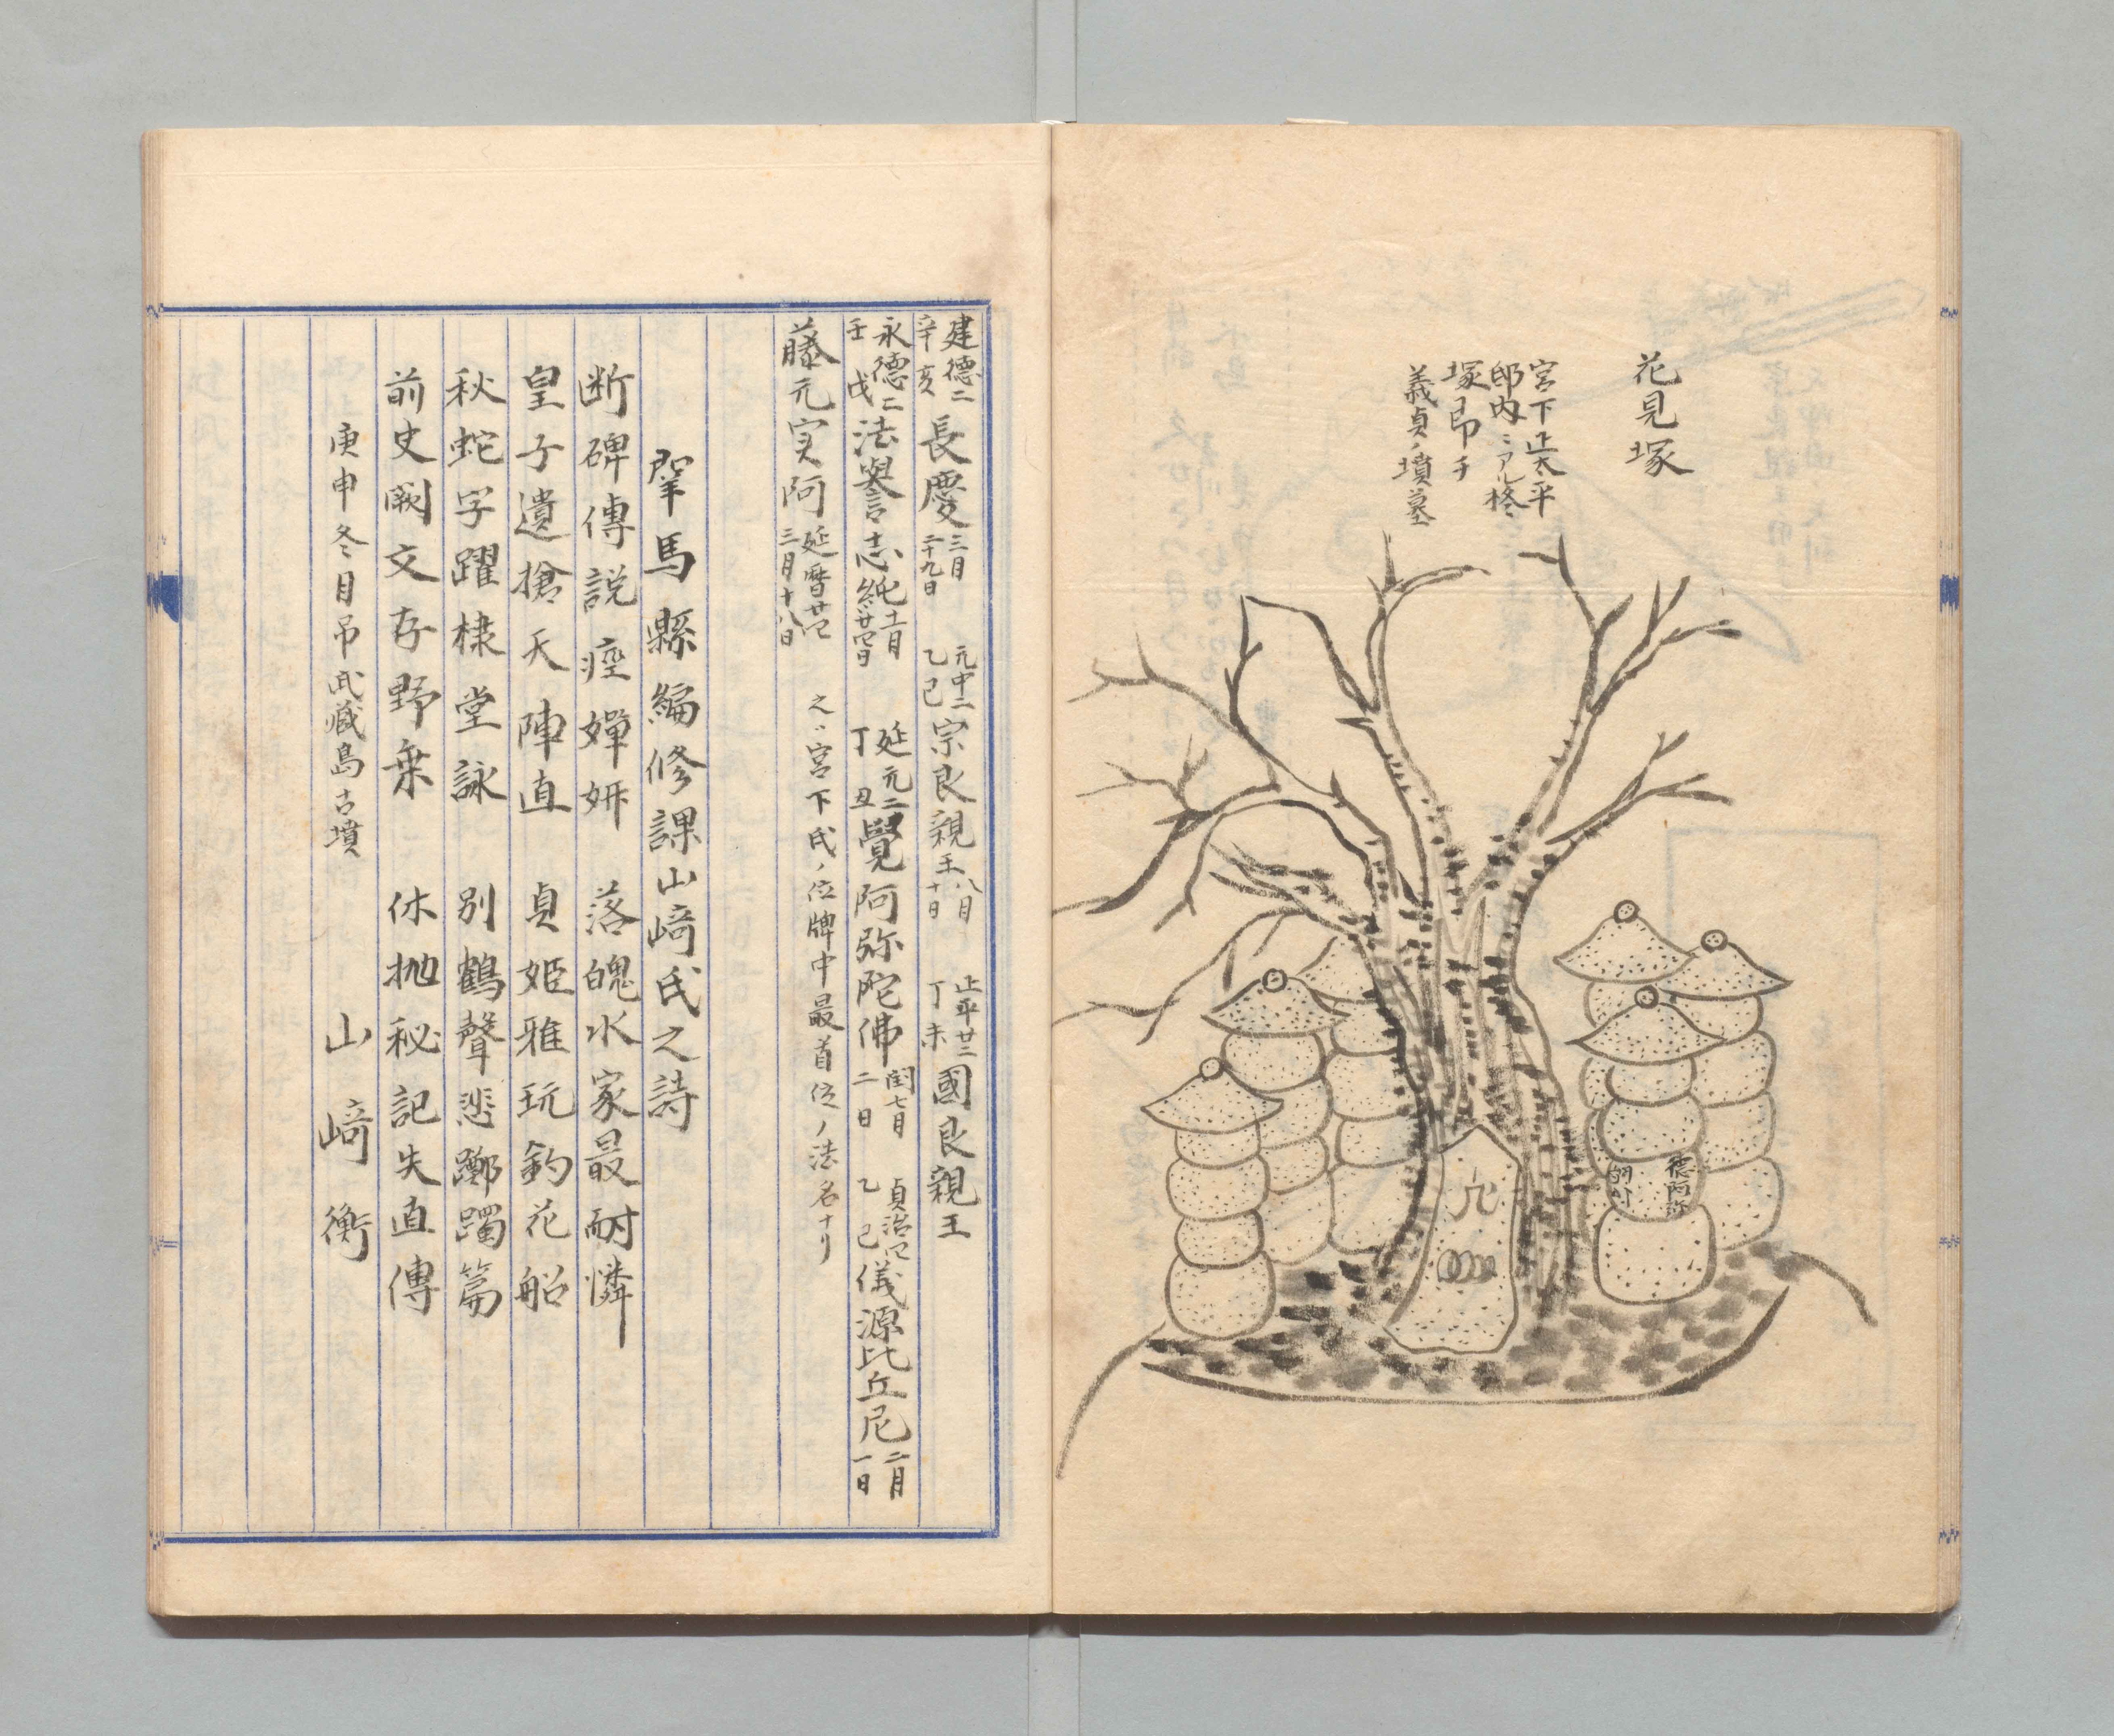 花見塚
宮下正太平
邸内ニアル柊
塚即チ
義貞ノ墳墓
德阿弥
建德二
辛亥
長慶
三月
二十九日
元中二
乙巳
宗良親王
八月
十日
正平廿二
丁未
國良親王
永德二
壬戌
法譽志純
十一月
廿四日
延元二
丁丑
覺阿弥陀佛
閏七月
二日
貞治四
乙巳
儀源比丘尼
二月
一日
藤元実阿
延暦廿四
三月十八日
之ハ宮下氏ノ位牌中最首位ノ法名ナリ
群馬縣編修課山﨑氏之詩
断碑傳説瘞嬋妍 落魄水家最耐憐
皇子遺搶天陣直 貞姫雅玩釣花船
秋蛇字躍棣堂詠 別鶴聲悲躑躅篇
前史闕文存野乗 休抛秘記失直傳
庚申冬日吊武藏島古墳
山﨑衡